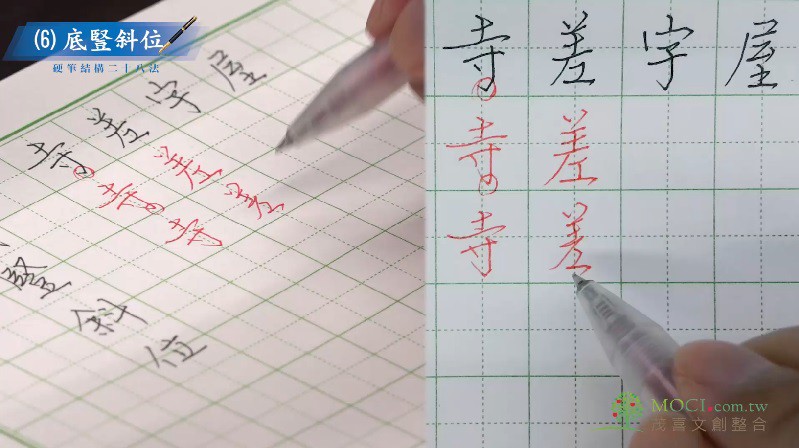 (6) 底豎斜位
硬筆結構二十八法
寺差字屋
寺差
寺差
豎斜位
寺差字屋
寺差
寺差
MOCI.com.tw
茂喜文創整合